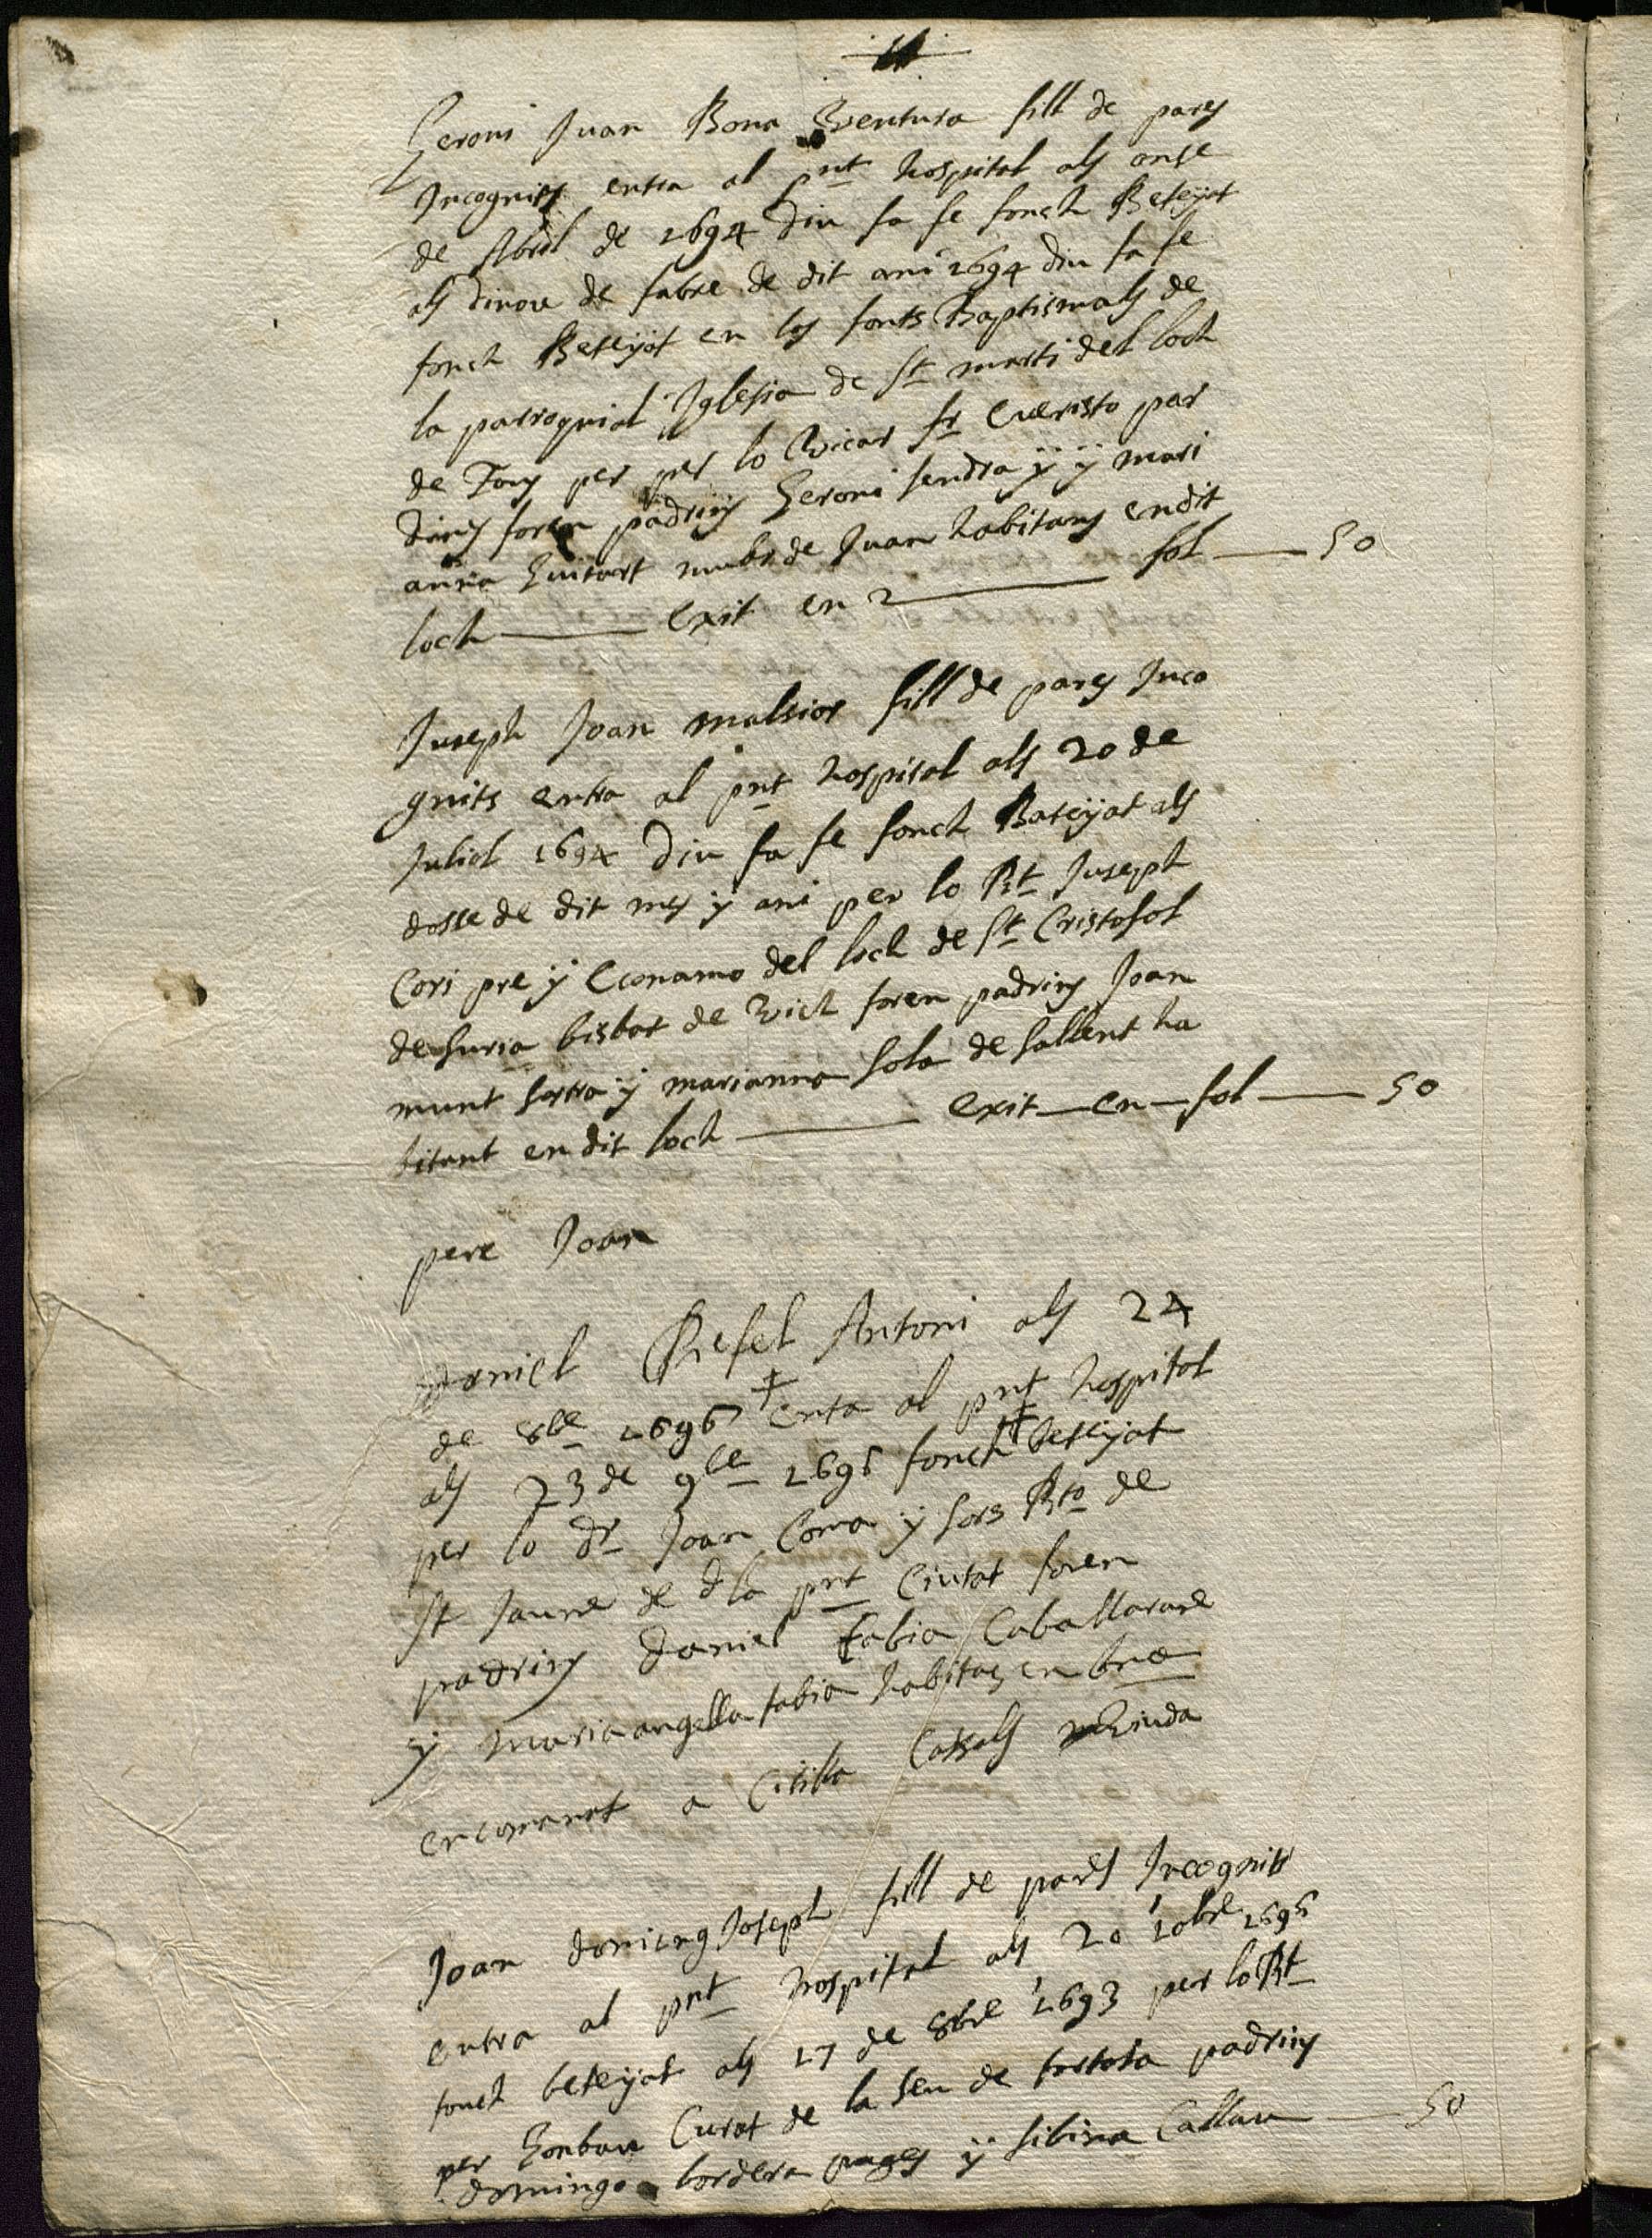 Geroni Juan Bona Ventura fill de pares
Incognits entra al pnt hospital als onse
de Abril de 1694 diu sa fe fonch Betejat
als dinou de fabre de dit ani 1694 diu sa fe
fonch Betejat en los fonts Baptismals de
la parroquial Iglesia de St marti del loch
de Tous per per lo Vicar fr Evaristo par
dines foren padrins Geroni sendra y y mari
anna Guitart mulr de Juan habitans en dit
loch exit en 2 fol 50
Juseph Joan malsior fill de pares Inco
gnits entra al pnt hospital als 20 de
Juliol 1694 diu sa fe fonch Batejat als
dosse de dit mes y ani per lo Rt Juseph
Cors pre y Econamo del loch de St Cristofol
de suria bisbat de Vich foren padrins Joan
munt sertra y marianna sola de sallent ha
bitant en dit loch exit en fol 50
pere Joan
daniel Refel Antoni als 24
de 8bre 1696 enta al pnt hospital
als 23 de 9bre 1696 fonch betejat
per lo Dr Joan Coma y sors Rto de
St Jaume de dla pnt Ciutat foren
padrins daniel fabia Caballarane
y maria angella fabia habitas en bna
encomenat a Cisilia Casals Viuda
Joan doming Joseph fill de pares Incognits
entra al pnt hospital als 20 10bre 1696
fonch betejat als 17 de 8bre 1693 per lo Rt
per Gonbau Curat de la seu de tortosa padrins
domingo bordera pages y sibina Callau 50